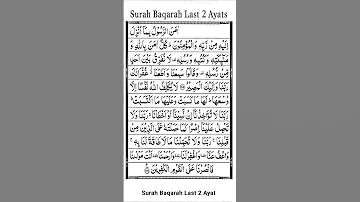 Surah Baqarah Last 2 Ayats
اٰمَنَ الرَّسُوْلُ بِمَآ اُنْزِلَ
اِلَيْهِ مِنْ رَّبِّهٖ وَالْمُؤْمِنُوْنَ ؕ كُلٌّ اٰمَنَ بِاللّٰهِ وَ
مَلٰٓئِكَتِهٖ وَكُتُبِهٖ وَرُسُلِهٖ لَا نُفَرِّقُ بَيْنَ اَحَدٍ
مِّنْ رُّسُلِهٖ وَقَالُوْا سَمِعْنَا وَاَطَعْنَا غُفْرَانَكَ
رَبَّنَا وَاِلَيْكَ الْمَصِيْرُ لَا يُكَلِّفُ اللّٰهُ نَفْسًا اِلَّا
وُسْعَهَا ؕ لَهَا مَا كَسَبَتْ وَعَلَيْهَا مَا اكْتَسَبَتْ ؕ
رَبَّنَا لَا تُؤَاخِذْنَآ اِنْ نَّسِيْنَآ اَوْ اَخْطَاْنَا ۚ رَبَّنَا وَلَا
تَحْمِلْ عَلَيْنَآ اِصْرًا كَمَا حَمَلْتَهٗ عَلَى الَّذِيْنَ مِنْ
قَبْلِنَا ۚ رَبَّنَا وَلَا تُحَمِّلْنَا مَا لَا طَاقَةَ لَنَا بِهٖ ۚ
وَاعْفُ عَنَّا وَاغْفِرْ لَنَا وَارْحَمْنَا اَنْتَ مَوْلٰىنَا
فَانْصُرْنَا عَلَى الْقَوْمِ الْكٰفِرِيْنَ
Surah Baqarah Last 2 Ayat